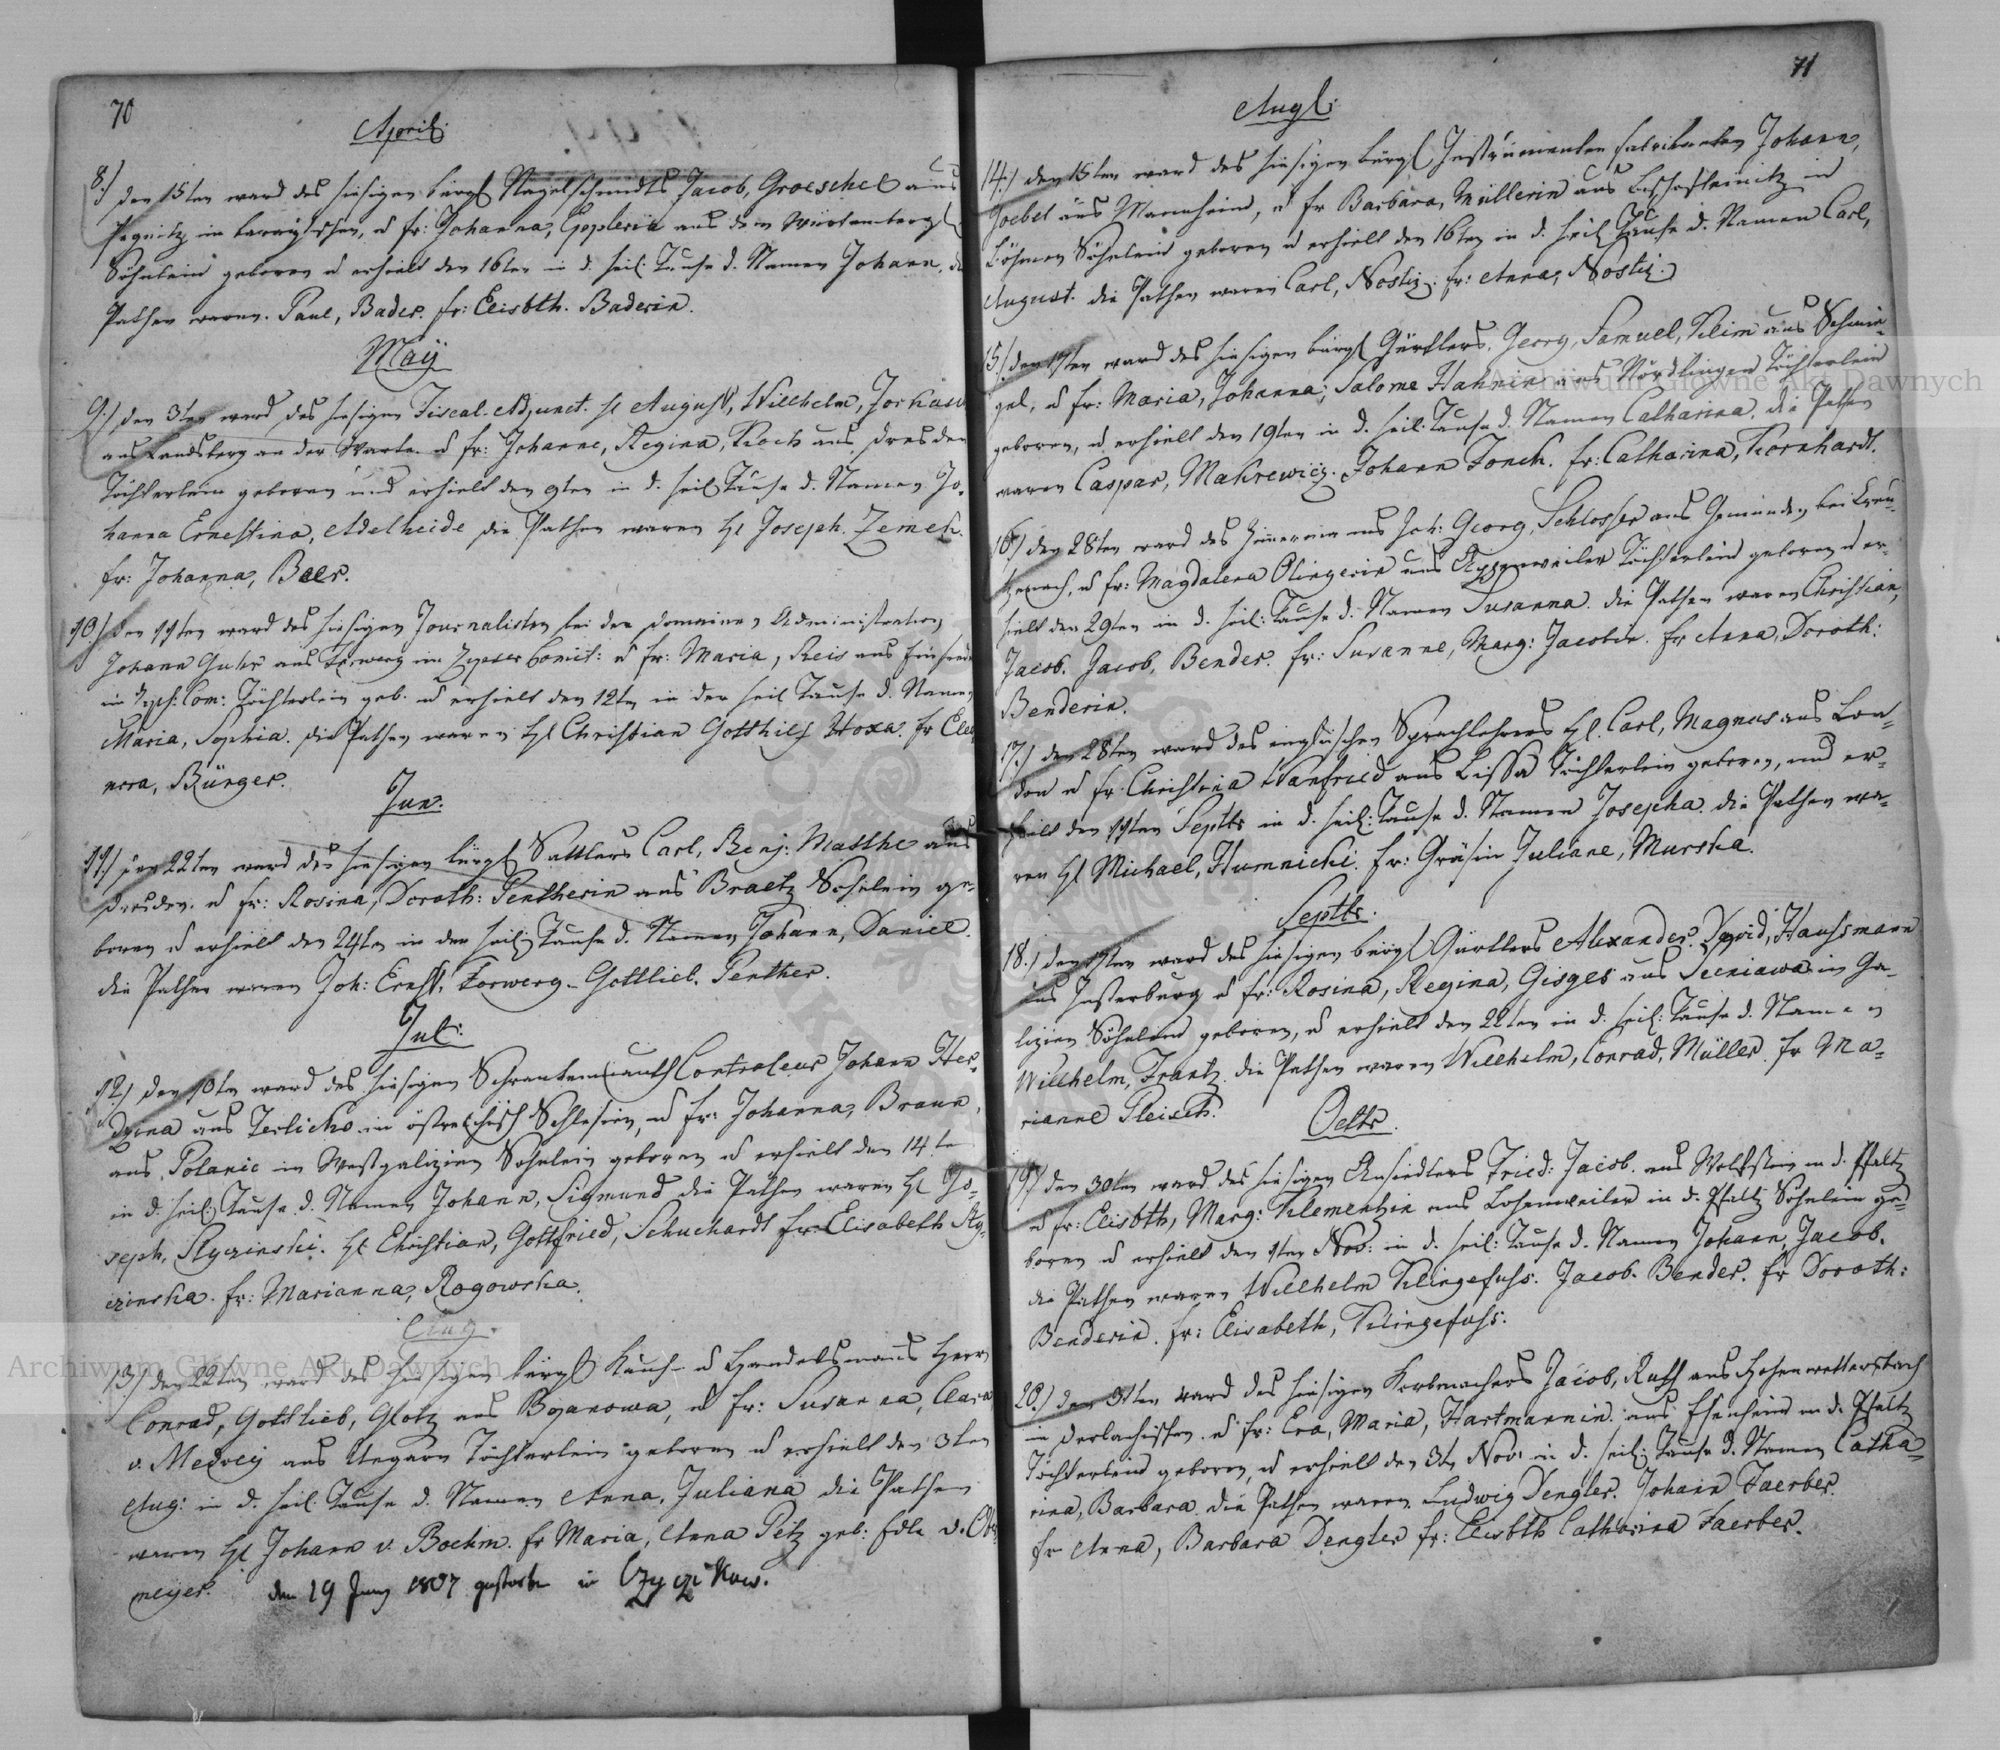 70
April:
8.) den 15ten ward des hiesigen bürgl Nagelschmidts Jacob, Groeschel aus
Pegnitz im bareuthschen, u fr: Johanna, Gepleria aus dem Würtembergl
Söhnlein geboren u erhielt den 16ten in d. heil: Taufe d. Namen Johann. die
Pathen waren. Paul, Bader. fr: Elisbth. Baderin.
Maÿ
9.) den 3ten ward des hiesigen Fiscal-Adjunct. H August, Wilhelm, Jorkaw
aus Landsberg an der Warte u fr: Johanne, Regina, Koch aus Dresden
Töchterlein geboren und erhielt den 9ten in d. heil Taufe d. Namen Jo-
hanna Ernestina, Adelheide die Pathen waren H Joseph. Zemek.
fr: Johanna, Beer.
10) den 11ten ward des hiesigen Journalisten bei der Domainen Administration
Johann Guhr aus im Zypser Comit: u fr: Maria, Reis aus
im Zyps: Com: Töchterlein geb. u erhielt den 12ten in der heil Taufe d. Namen
Maria, Sophia. die Pathen waren H Christian Gotthilf Hoxa. fr Eleo
nora, Bürger.
Jun.
11.) den 22ten ward des hiesigen bürgl Sattlers Carl, Benj: Matthe aus
Dresden. u fr: Rosina, Doroth: Pentherin aus Braetz Söhnlein ge-
boren u erhielt den 24ten in der heil: Taufe d. Namen Johann, Daniel.
die Pathen waren Joh: Ernst, Forwerg - Gottlieb. Penther.
Jul:
12) den 10ten ward des hiesigen Controleur Johann Her-
dyina aus Terlicko in östreichisch Schlesien, u fr: Johanna, Braun
aus Polanie in Westgalizien Söhnlein geboren u erhielt den 14ten
in d. heil: Taufe d. Namen Johann, Sigmund die Pathen waren H Jo-
seph, Slyczinski. H Christian, Gottfried, Schuchardt fr: Elisabeth Sly-
czinska. fr: Marianna, Rogowska.
Aug.
13) den 22ten ward des hiesigen bürgl Kauf- u Handelsmanns Herrn
Conrad, Gottlieb, Glotz aus Bojanowa, u fr: Susanna, Clara
v. Medvey aus Ungarn Töchterlein geboren u erhielt den 3ten
Aug: in d. heil: Taufe d. Namen Anna, Juliana die Pathen
waren H Johann v. Boehm. fr Maria, Anna Petz geb: Edle v. Ober
meyer. den 19 Juny 1807 gestorben in Czyczkow.
71
Augl:
14.) den 15ten ward des hiesigen bürgl Instrumenten fabrikanten Johann,
Goebel aus Mannheim, u fr Barbara, Müllerin aus Bischofteinitz in
Böhmen Söhnlein geboren u erhielt den 16ten in d. heil Taufe d. Namen Carl,
August. die Pathen waren Carl, Nostiz. fr: Anna, Nostiz.
15.) den 17ten ward des hiesigen bürgl Gürtlers. Georg, Samuel, Klim aus Schmie-
gel, u fr: Maria, Johanna, Salome Hahnin aus Nördlingen Töchterlein
geboren, u erhielt den 19ten in d. heil: Taufe d. Namen Catharina. die Pathen
waren Caspar, Makrewicz. Johann Fonck. fr: Catharina, Kornhardt.
16) den 28ten ward des Zimmermanns Joh: Georg, Schlosser aus Gemünden bei Creu-
tzenach, u fr: Magdalena Olingerin aus Appenweiler Töchterlein geboren u er-
hielt den 29ten in d. heil: Taufe d. Namen Susanna. die Pathen waren Christian,
Jacob. Jacob, Bender. fr: Susanne, Marg: Jacobin. fr Anna, Doroth:
Benderin.
17.) den 28ten ward des englischen Sprachlehrers H. Carl, Magnus aus Lon-
don u fr Christina Wanfried aus Lissa Töchterlein geboren, und er-
hielt den 11ten Septbr in d. heil: Taufe d. Namen Josepha. die Pathen wa-
ren H Michael, Humnicki. fr: Gräfin Juliane, Murska.
Septbr.
18.) den 17ten ward des hiesigen bürgl Gürtlers Alexander. David, Haussmann
aus Insterburg u fr: Rosina, Regina, Gisges aus Seeniawa in Ga-
lizien Söhnlein geboren, u erhielt den 22ten in d. heil: Taufe d. Namen
Wilhelm, Frantz. die Pathen waren Wilhelm, Conrad, Müller. fr Ma-
rianne Pleisch.
Octbr.
19) den 30ten ward des hiesigen Ansiedlers Fried: Jacob. aus Wolfstein in d. Pfaltz
u fr: Elisbth, Marg: Klementzin aus Lohenweiler in d. Pfaltz Söhnlein ge-
boren u erhielt den 1ten Nov: in d. heil: Taufe d. Namen Johann, Jacob.
die Pathen waren Wilhelm Klingefuss. Jacob. Bender. fr Doroth:
Benderin. fr: Elisabeth, Klingefuss.
20.) den 31ten ward des hiesigen Korbmachers Jacob, Ruth aus Hohenwettersbach
in Derlachischen. u fr: Eva, Maria, Hartmannin. aus in d. Pfaltz
Töchterlein geboren, u erhielt den 3ten Nov: in d. heil: Taufe d. Namen Catha-
rina, Barbara. die Pathen waren. Ludwig Dengler. Johann Faerber.
fr Anna, Barbara Dengler fr: Elisbth Catharina Faerber.
Archiwum Główne Akt Dawnych
Archiwum Główne Akt Dawnych